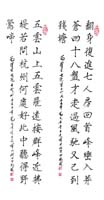 翻身復進七人房回首峰巒入莽
蒼四十八盤才走過風馳又已到
錢塘
五雲山上五雲飛遠接群峰近拂
堤若問杭州何處好此中聽得野
鶯啼